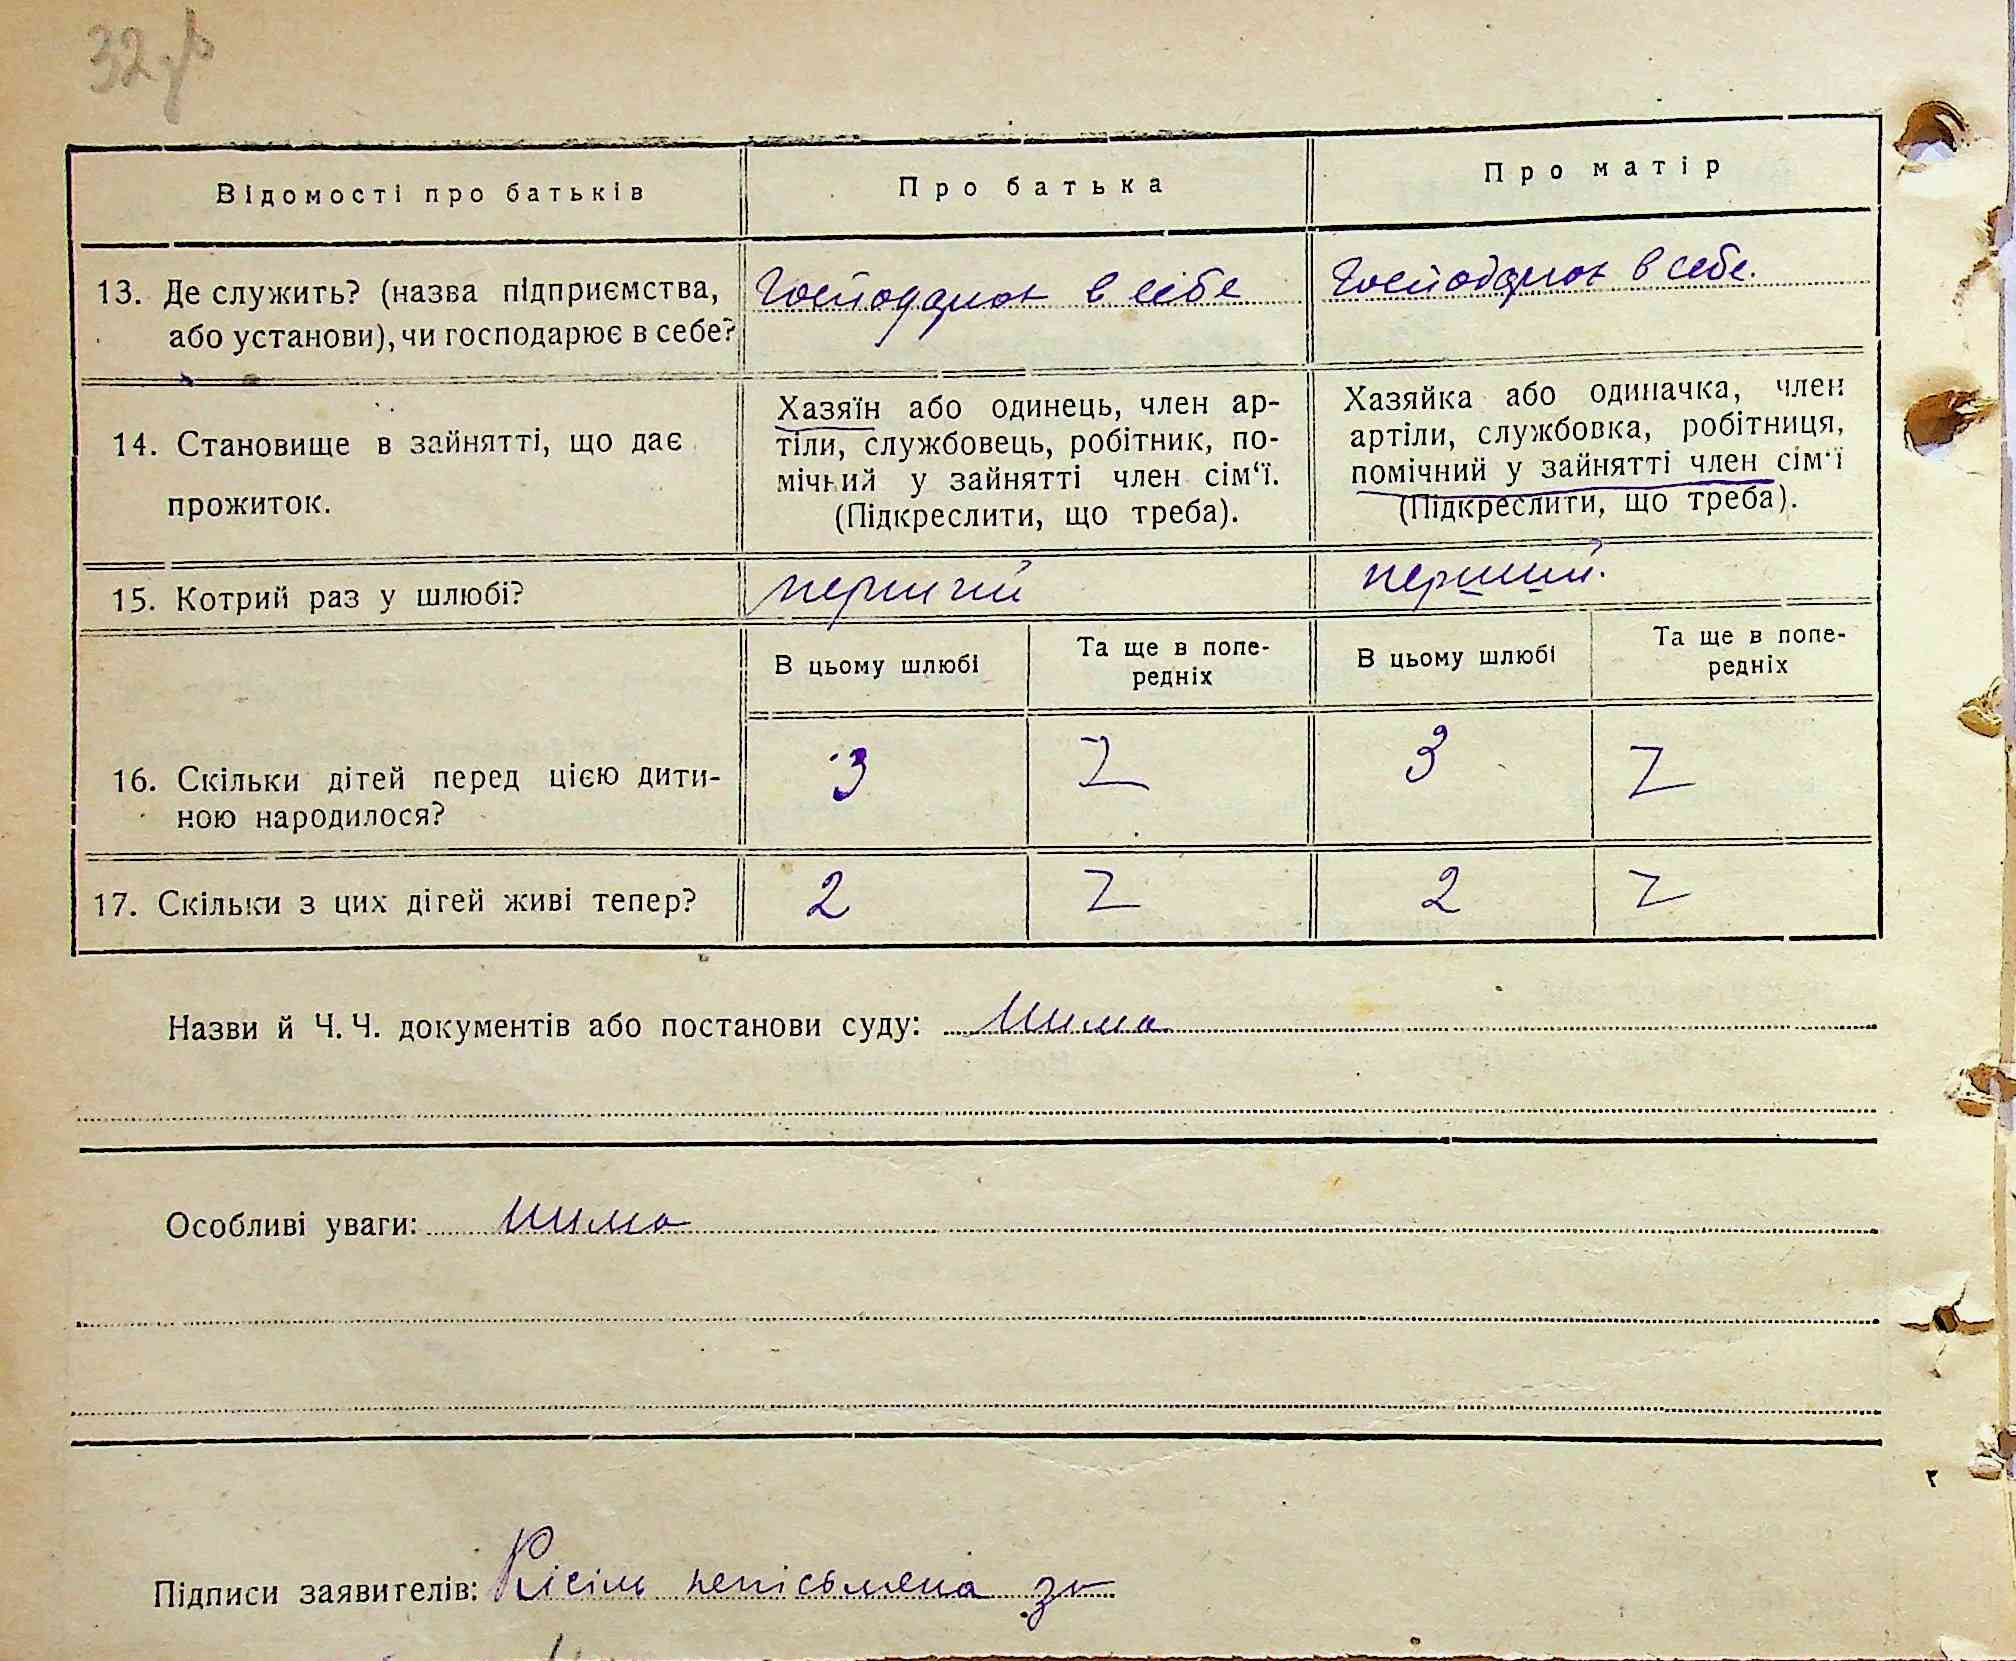 32
Відомості про батьків
Про батька
Про матір
13. Де служить? (назва підприємства,
або установи), чи господарює в себе?
в себе
в себе.
14. Становище в зайнятті, що дає
прожиток.
Хазяїн або одинець, член ар-
тіли, службовець, робітник, по-
мічний у зайнятті член сім‘ї.
(Підкреслити, що треба).
Хазяйка або одиначка, член
артіли, службовка, робітниця,
помічний у зайнятті член сім‘ї
(Підкреслити, що треба).
15. Котрий раз у шлюбі?
перший
перший.
В цьому шлюбі
Та ще в попе-
редніх
В цьому шлюбі
Та ще в попе-
редніх
16. Скільки дітей перед цією дити-
ною народилося?
3
Z
3
Z
17. Скільки з цих дітей живі тепер?
2
Z
2
Z
Назви й Ч. Ч. документів або постанови суду: нима
Особливі уваги: нима
Підписи заявителів: Кісіль неписьмена за